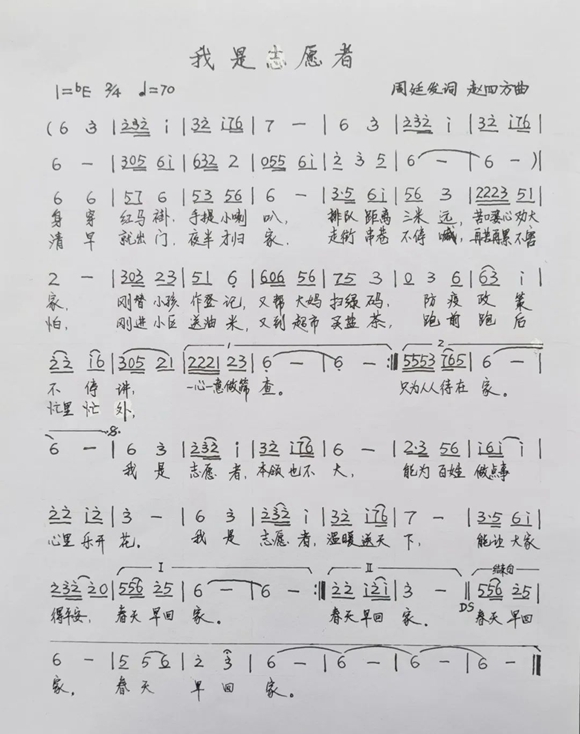 我是志愿者
1=♭E 2/4 ♩=70 周廷发词 赵四方曲
( 6 3 | 232 i | 32 i76 | 7 - | 6 3 | 232 i | 32 i76 |
6 - | 305 6i | 632 2 | 055 6i | 2 3 5 | 6 - | 6 - )|
6 6 | 57 6 | 53 56 | 6 - | 3·5 6i | 56 3 | 2223 51 |
身穿 红马褂，手提小喇叭，排队距离三米远，苦口婆心劝大
清早 就出门，夜半才归家，走街串巷不停喊，再苦再累不害
2 - | 303 23 | 51 6 | 606 56 | 75 3 | 0 3 6 | 63 i |
家， 刚替小孩作登记，又帮大妈扫绿码，防疫政策
怕， 刚进小区送油米，又到超市买盐茶，跑前跑后
22 i6 | 305 21 | 2221 23 | 6 - | 6 - :‖ 5553 765 | 6 - |
不停讲， 一心一意做筛查。 只为人人待在家。
忙里忙外，
6 - | 6 3 | 232 i | 32 i76 | 6 - | 2·3 56 | i6i i |
我是志愿者，本领也不大，能为百姓做点事
22 i2 | 3 - | 6 3 | 232 i | 32 i76 | 7 - | 3·5 6i |
心里乐开花。 我是志愿者，温暖送天下，能让大家
232 20 | 556 25 | 6 - | 6 - :‖ 22 i2i | 3 - ‖ 556 25 |
得平安， 春天早回家。 春天早回家。 DS 春天早回
6 - | 5 56 | 2 3 | 6 - | 6 - | 6 - | 6 - ‖
家。 春天早回家。